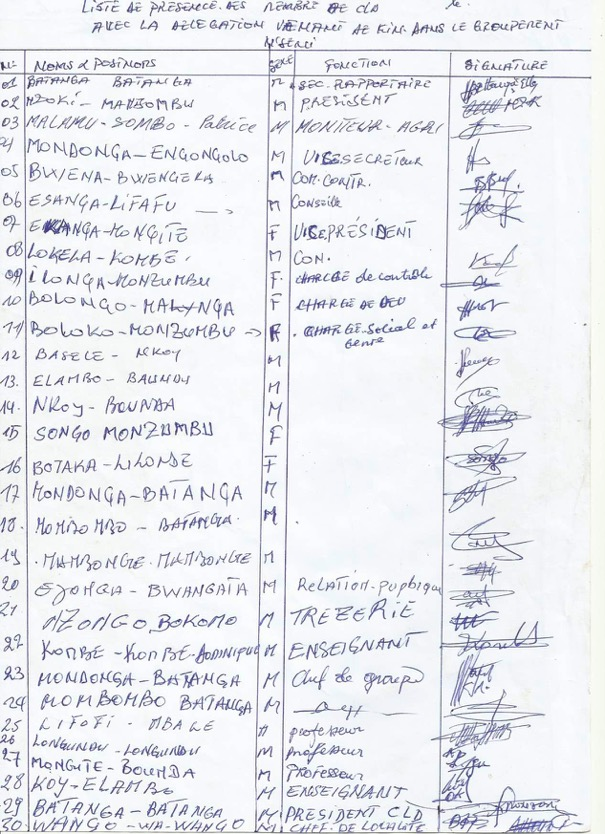 LISTE DE PRESENCE DES MEMBRE DE CLD
AVEC LA DELEGATION VENANT DE KIN. DANS LE GROUPEMENT
N'SEMI
N° NOMS & POSTNOMS SEXE FONCTION SIGNATURE
01 BATANGA BATANGA M SEC. RAPPORTAIRE
02 NZOKI - MANDOMBU M PRESIDENT
03 MALAMU - SOMBO - Patrice M MONITEUR - AGRI
04 MONDONGA - ENGONGOLO M VICE SECRETEUR
05 BWENA - BWENGELA M COM. CONTR.
06 ESANGA - LIFAFU M Conseille
07 EKANGA - MONGITE F VICE PRÉSIDENT
08 LOKELA - KOMBE M CON.
09 ILONGA - MONZUMBU F CHARGE de contrôle
10 BOLONGO - F CHARGE DE
11 BOLOKO - MONZUMBU F CHARGE - Social et genre
12 BASELE - NKOY M
13. ELAMBO - BAUNDU M
14. NKOY - BOUNDA M
15 SONGO MONZUMBU F
16 BOTAKA - LILONDE F
17 MONDONGA - BATANGA M
18. MOMBOMBO - BATANGA M
19 MAMBONGE MAMBONGE M
20 EJONGA - BWANGATA M RELATION - pupbique
21 NZONGO BOKOMO M TREZERIE
22 KOMBE - KOMBE M ENSEIGNANT
23 MONDONGA - BATANGA M Chef de groupe
24 MOMBOMBO BATANGA M
25 LIFOFI - MBALE M professeur
26 LONGUNDU - LONGUNDU M professeur
27 MONGITE - BOUNDA M Professeur
28 KOY - ELAMBO M ENSEIGNANT
29 BATANGA - BATANGA M PRESIDENT CLD
30 WANGO - WA - WANGO M CHEF. DE LOCALITE